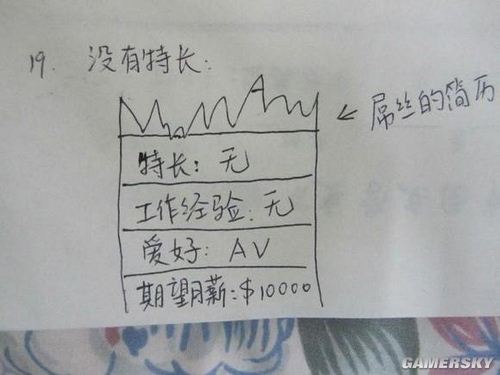 19. 没有特长:
← 屌丝的简历
特长: 无
工作经验: 无
爱好: AV
期望月薪: $10000
GAMERSKY